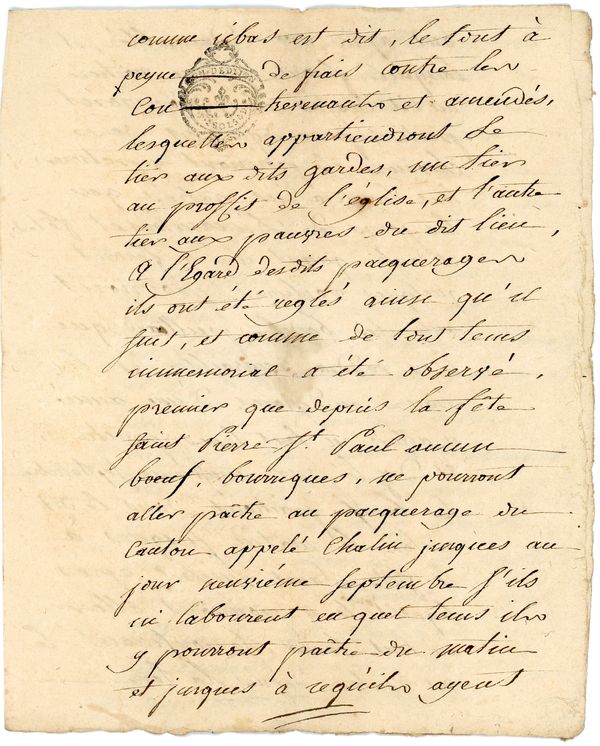 comme icbas est dit, le tout à
peyne de frais contre les
Contrevenants et amendés,
lesquelles appartiendront le
tier aux dits gardes, un tier
au proffit de l'église, et l'autre
tier aux pauvres du dit lieu,
a l'Egard desdits pacquerages
ils ont été reglés ainsi qu'il
suit, et comme de tout tems
immemorial a été observé,
premier que depuis la fête
saint Pierre St Paul aucun
boeuf, bourriques, ne pourront
aller paître au pacquerage du
Canton appelé Chalin jusques au
jour neuviéme septembre s'ils
ni labourent en quel tems ils
y pourront paître du matin
et jusques à ils ayent